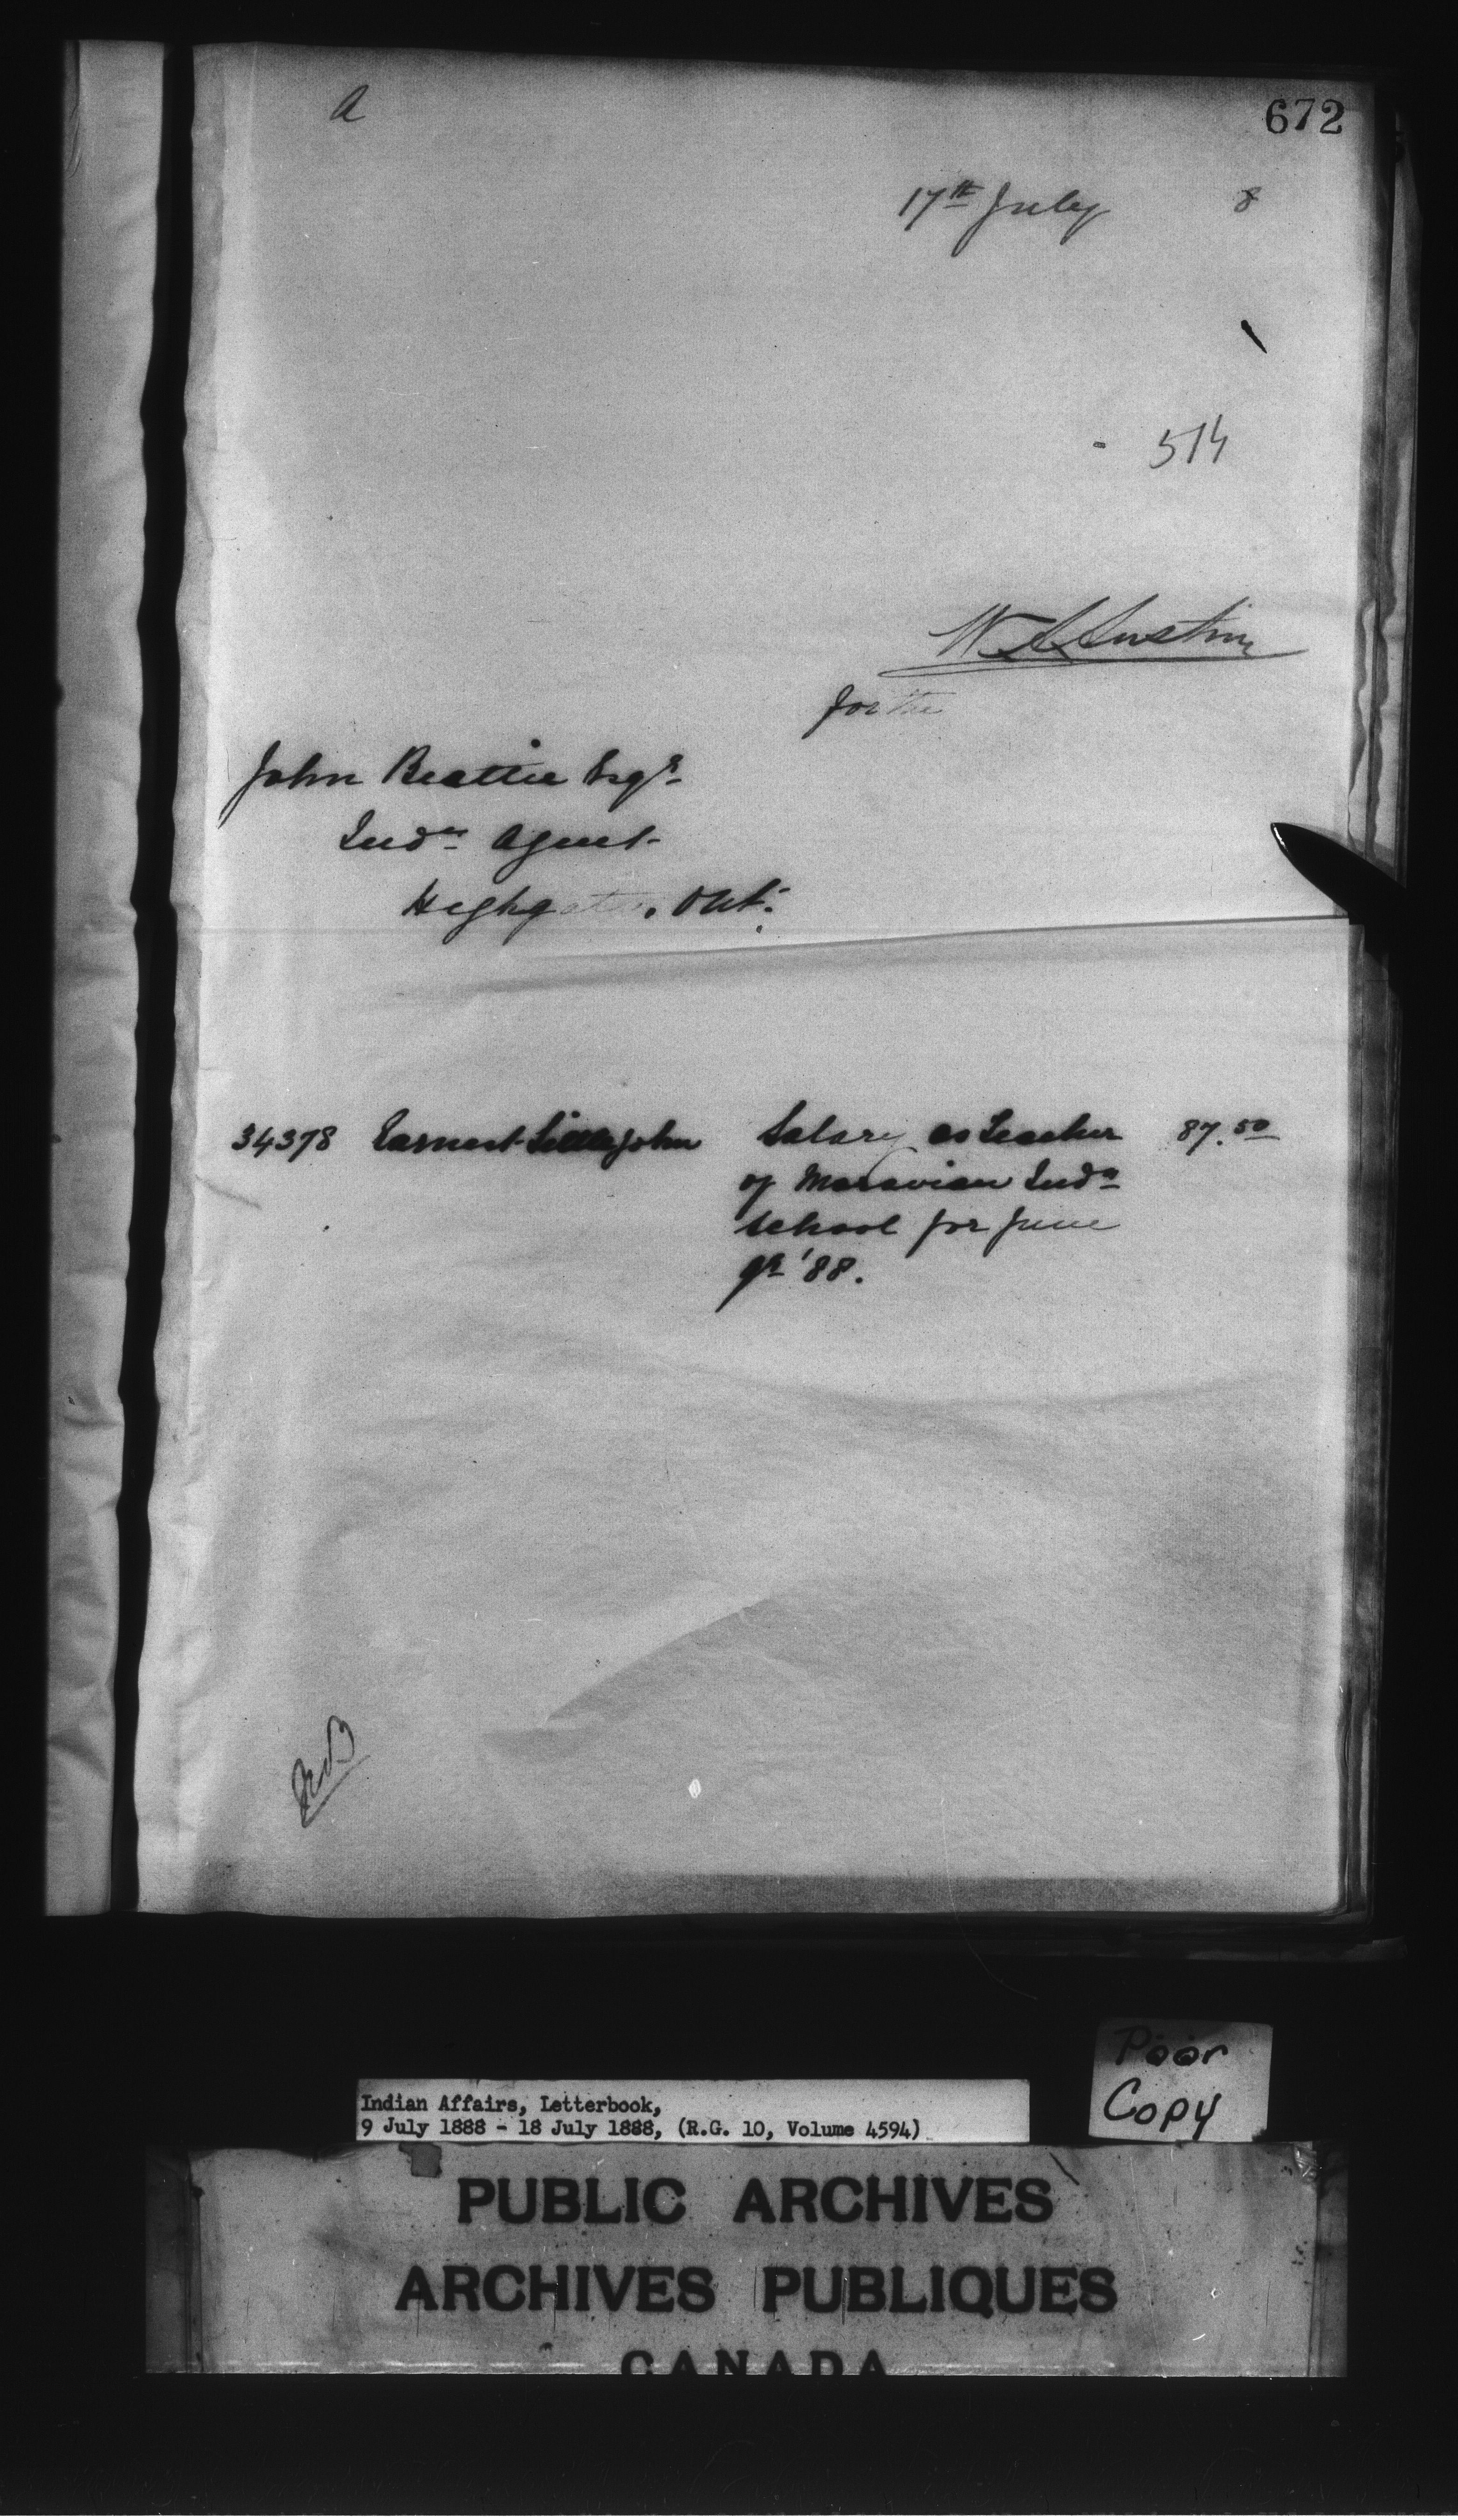 A
672
17th July 8
- 514
W A Austin
for the
John Beattie Esqr.
Indn. Agent
Highgate, Ont.
34378 Earnest Littlejohn Salary as Teacher 87.50
of Moravian Indn.
School for June
qr. '88.
Poor
Copy
Indian Affairs, Letterbook,
9 July 1888 - 18 July 1888, (R.G. 10, Volume 4594)
PUBLIC ARCHIVES
ARCHIVES PUBLIQUES
CANADA